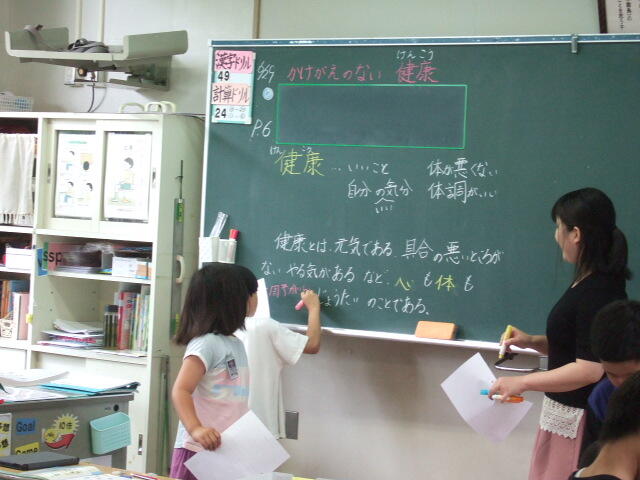 漢字ドリル
49
計算ドリル
24
9/9
かけがえのない 健康
けんこう
P.6
けんこう
健康…いいこと
自分の気分
いい
体が悪くない
体調がいい
健康とは、元気である、具合の悪いところが
ない、やる気がある など、心も体も
じょうたいのことである。
ssp
Goal
Game